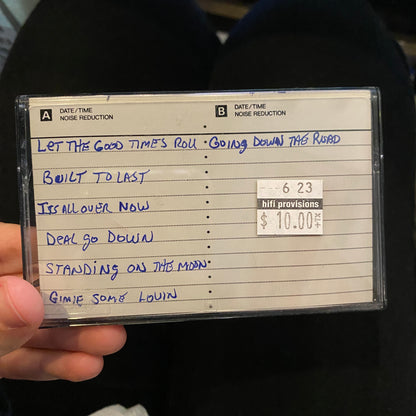 A DATE/TIME
NOISE REDUCTION
B DATE/TIME
NOISE REDUCTION
LET THE GOOD TIMES ROLL
BUILT TO LAST
ITS ALL OVER NOW
DEAL GO DOWN
STANDING ON THE MOON
GIMIE SOME LOVIN
GOING DOWN THE ROAD
6 23
hifi provisions
$ 10.00